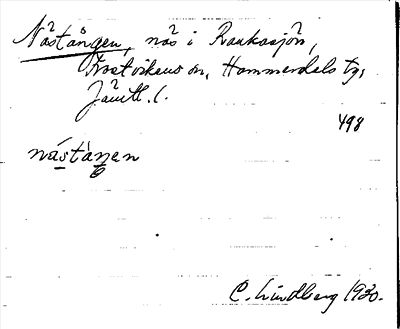 Nåstången, nås i Rankasjön,
Frostvikens sn, Hammerdals tg,
Jämtl. l.
498
nástànen
C. Lindberg 1930.